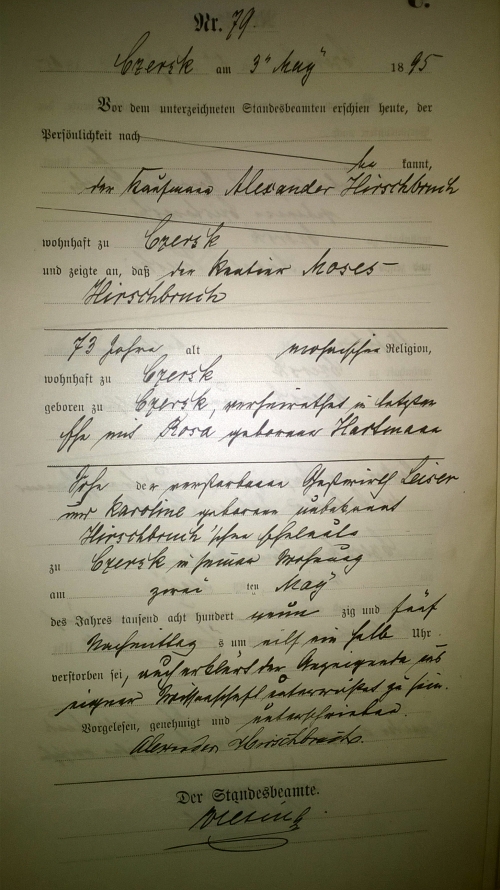 C.
Nr. 79
Czersk am 3ten May 1895
Vor dem unterzeichneten Standesbeamten erschien heute, der
Persönlichkeit nach
be kannt,
der Kaufmann Alexander Hirschbruch
wohnhaft zu Czersk
und zeigte an, daß der Rentier Moses
Hirschbruch
73 Jahre alt mosaischer Religion,
wohnhaft zu Czersk
geboren zu Czersk, verheirathet in letzter
Ehe mit Rosa geborenen Hartmann
Sohn der verstorbenen Gastwirth Leiser
und Karoline geborene unbekannt
Hirschbruch'schen Eheleute
zu Czersk in seiner Wohnung
am zwei ten May
des Jahres tausend acht hundert neun zig und fünf
Nachmittag s um eilf ein halb Uhr
verstorben sei, auch erklärt der Anzeigende aus
eigner Wissenschaft unterrichtet zu sein.
Vorgelesen, genehmigt und unterschrieben.
Alexander Hirschbruch.
Der Standesbeamte.